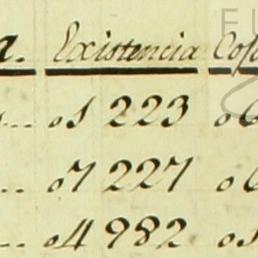 a. Existencia Cos
o1 223 o6
o7 227 o6
o4 982 o1